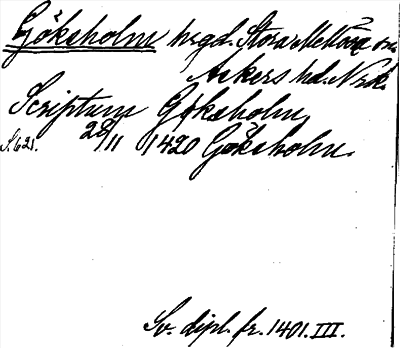 Göksholm hrgd. Stora Mellösa sn.
Askers hd. Nrk.
Scriptum Göksholm
S. 621. 28/11 1420 Göksholm.
Sv. dipl. fr. 1401. III.